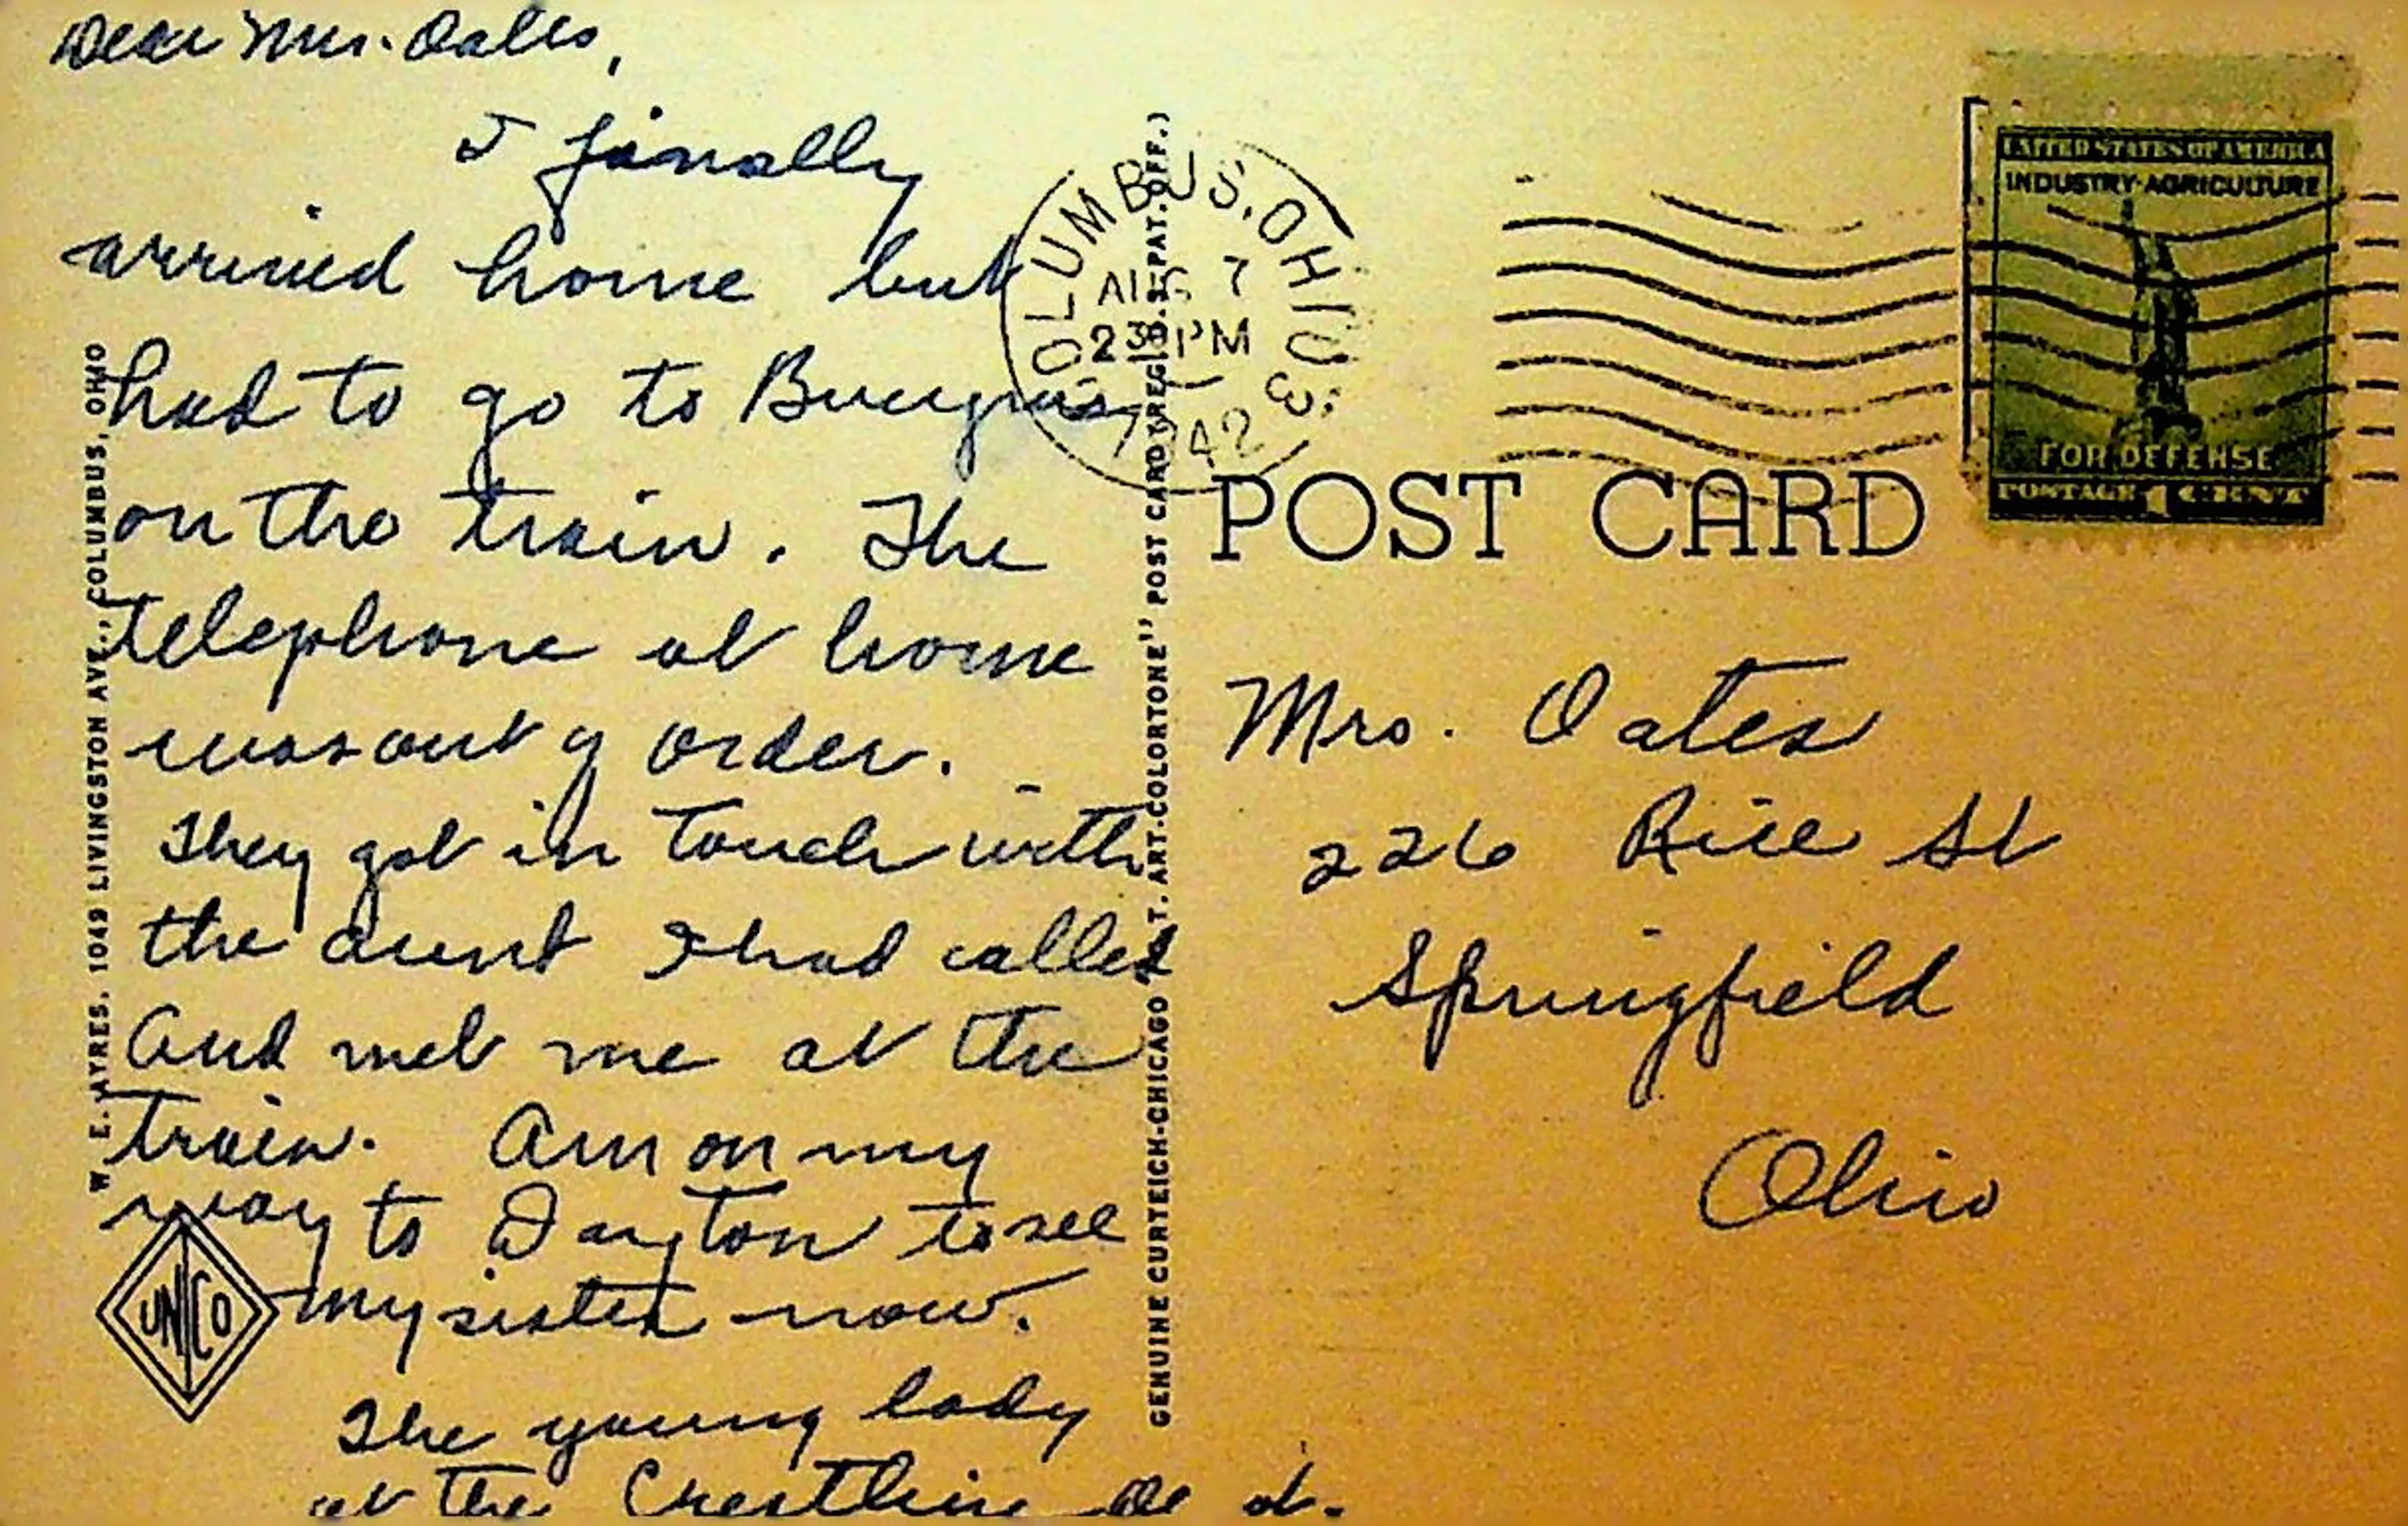 Dear Mrs. Oates,
I finally
arrived home but
had to go to Bucyrus
on the train. The
telephone at home
was out of order.
They got in touch with
the aunt I had called
And met me at the
train. Am on my
way to Dayton to see
my sister now.
The young lady
at the Crestline
W. E. AYRES, 1049 LIVINGSTON AVE., COLUMBUS, OHIO
UNICO
GENUINE CURTEICH-CHICAGO "C. T. ART-COLORTONE" POST CARD (REG. U.S. PAT. OFF.)
COLUMBUS, OHIO
AUG 7
230 PM
1942
UNITED STATES OF AMERICA
INDUSTRY·AGRICULTURE
FOR DEFENSE
POSTAGE 1 CENT
POST CARD
Mrs. Oates
226 Rice St
Springfield
Ohio